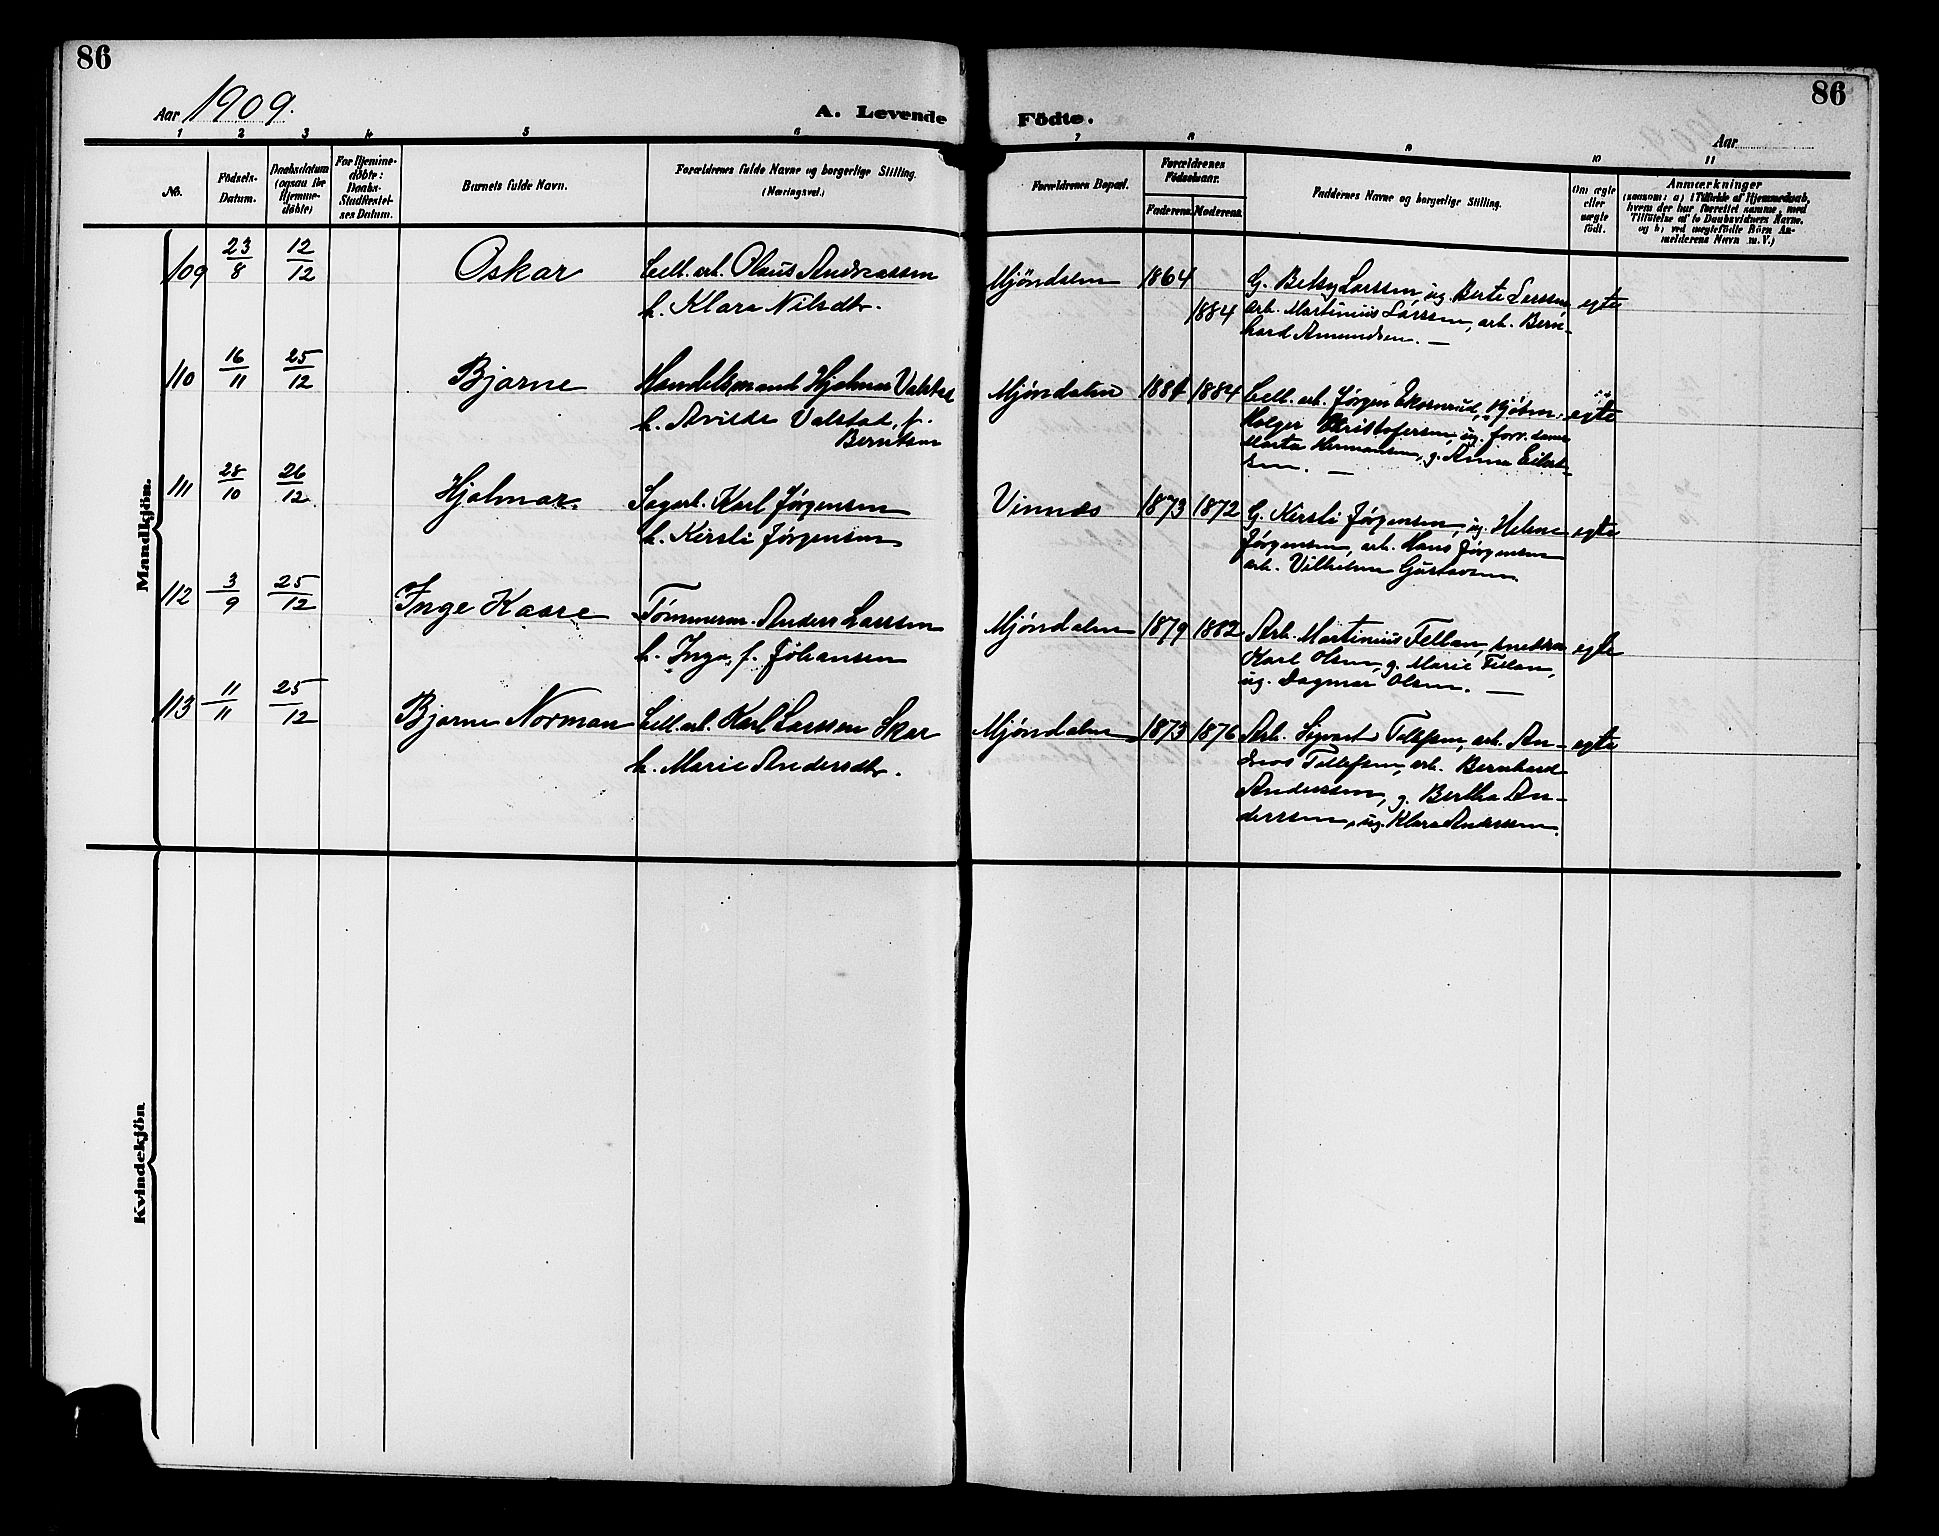 86
86
Aar 1909.
A. Levende Födte.
Aar
1 2 3 4 5 6 7 8 9 10 11
No.
Födsels-
Datum.
Daabsdatum
(ogsaa for
Hjemme-
döbte)
For Hjemme-
döbte:
Daabs-
Stadfæstel-
ses Datum.
Barnets fulde Navn.
Forældrenes fulde Navne og borgerlige Stilling.
(Næringsvei.)
Forældrenes Bopæl.
Forældrenes
Födselsaar.
Faderens. Moderens.
Faddernes Navne og borgerlige Stilling.
Om ægte
eller
uægte
födt.
Anmærkninger
(saasom: a) i Tilfælde af Hjemmedaab,
hvem der har forrettet samme, med
Tilföielse af to Daabsvidners Navne,
og b) ved uægtefödte Börn An-
melderens Navn m. V.)
Mandkjön.
109 23/8 12/12 Oskar
Cell. arb. Olaus Andreassen
h. Klara Nilsdtr.
Mjøndalen 1864 1884
G. Betsy Larssen, ug. Berte Larssen
arb. Martinius Larssen, arb. Bern-
hard Amundsen. —
egte
110 16/11 25/12 Bjarne
Handelsmand Hjalmar Valstad
h. Arilde Valstad, f.
Berntsen
Mjøndalen 1884 1884
Cell. arb. Jørgen Ekornrud, Kjøbm.
Holger Kristofersen, ug. forr. dame
Marta Hermansen, g. Anna Eilert-
sen. —
egte
111 28/10 26/12. Hjalmar.
Sagarb. Karl Jørgensen
h. Kirsti Jørgensen
Vinnæs 1873 1872
G. Kirsti Jørgensen, ug. Helene
Jørgensen, arb. Hans Jørgensen
arb. Vilhelm Gustavsen
egte
112 3/9 25/12 Inge Kaare
Tømmerm. Anders Larssen
h. Inga, f. Johansen
Mjøndalen 1879 1882
Arb. Martinius Tellan, snekker
Karl Olsen, g. Marie Tellan,
ug. Dagmar Olsen. —
egte
113 11/11 25/12 Bjarne Norman
Cell. arb. Karl Larssen Skar
h. Marie Andersdtr.
Mjøndalen 1873 1876
Arb. Sigvart Tollefsen, arb. An-
dreas Tollefsen, arb. Bernhard
Anderssen, g. Bertha An-
derssen, ug. Klara Anderssen.
egte
Kvindekjön